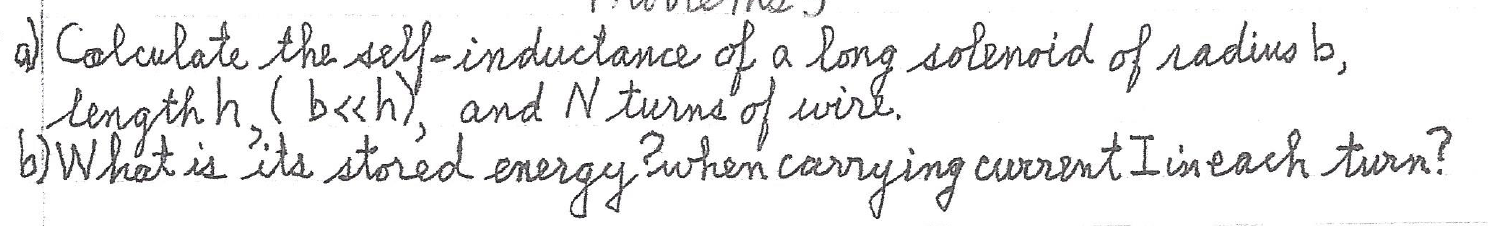 a) Calculate the self-inductance of a long solenoid of radius b,
length h, (b<<h), and N turns of wire.
b) What is its stored energy? when carrying current I in each turn?